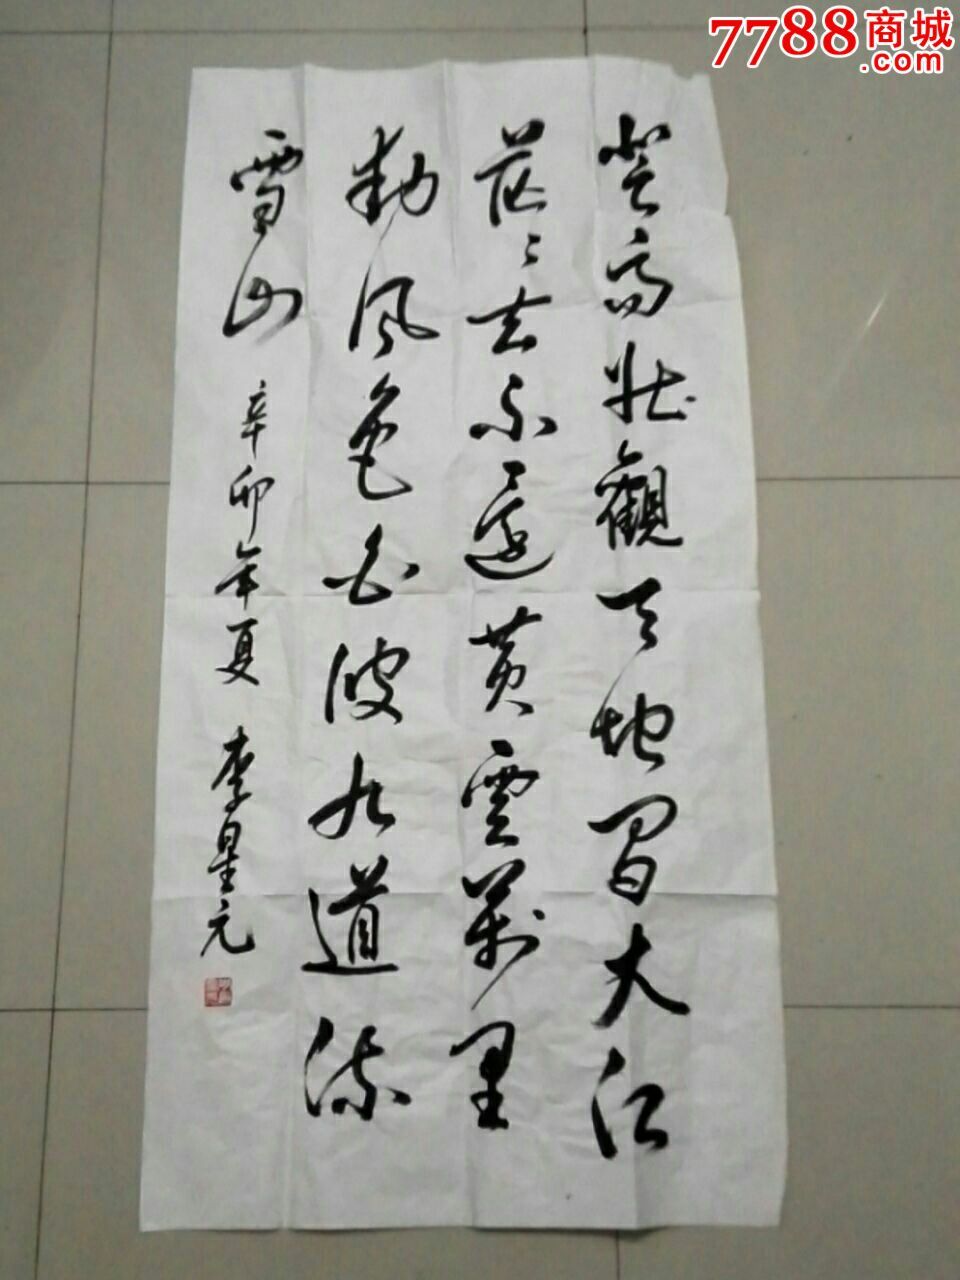 7788商城
.com
登高壯觀天地間大江
茫〻去不還黄雲萬里
動風色白波九道流
雪山
辛卯年夏 李星元